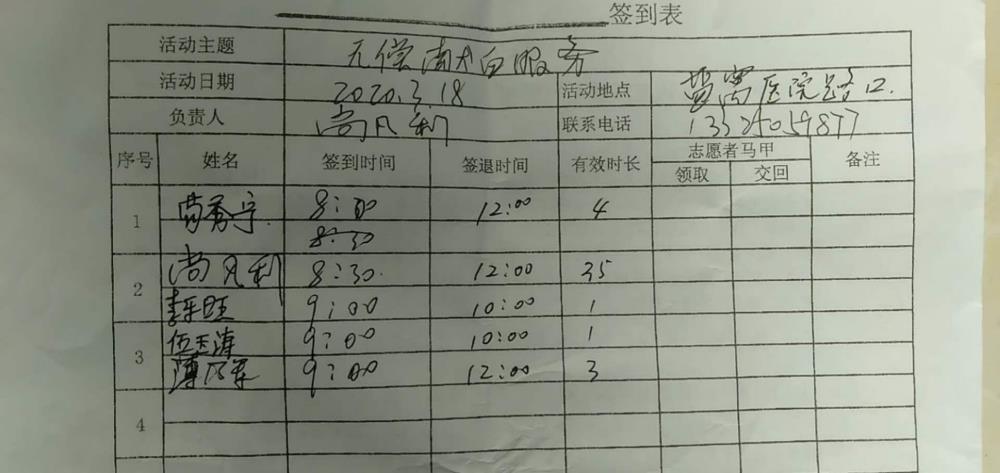 签到表
活动主题 无偿 服务
活动日期 2020.3.18 活动地点 医院路口.
负责人 尚凡利 联系电话
序号 姓名 签到时间 签退时间 有效时长 志愿者马甲 备注
领取 交回
1 8:00 12:00 4
8:30
2 尚凡利 8:30. 12:00 35
李乐旺 9:00 10:00 1
3 伍玉涛 9:00 10:00 1
9:00 12:00 3
4